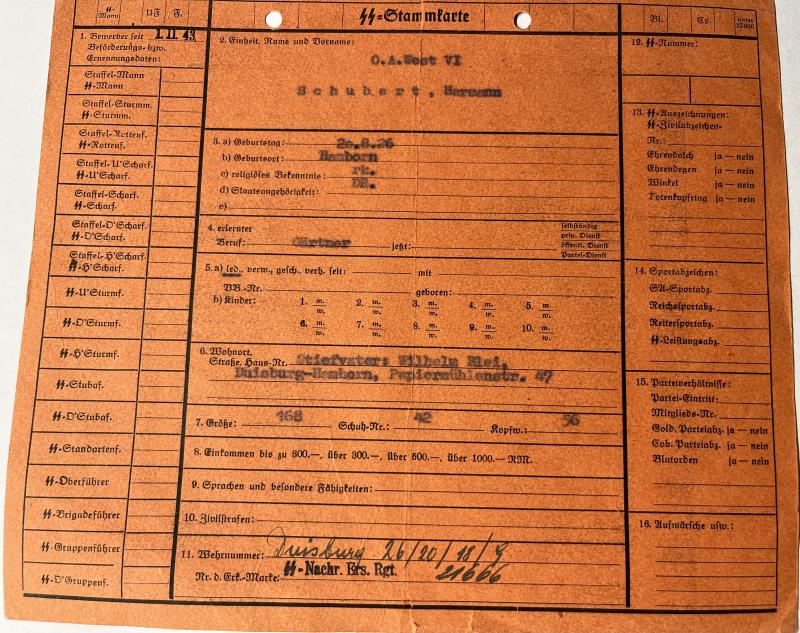 SS-Mann
UF
F.
SS-Stammkarte
Bl.
Co.
unter 15 000
1. Bewerber seit 1.11.43
Beförderungs- bzw.
Ernennungsdaten:
Staffel-Mann
SS-Mann
Staffel-Sturmm.
SS-Sturmm.
Staffel-Rottenf.
SS-Rottenf.
Staffel-U'Scharf.
SS-U'Scharf.
Staffel-Scharf.
SS-Scharf.
Staffel-O'Scharf.
SS-O'Scharf.
Staffel-H'Scharf.
SS-H'Scharf.
SS-U'Sturmf.
SS-O'Sturmf.
SS-H'Sturmf.
SS-Stubaf.
SS-O'Stubaf.
SS-Standartenf.
SS-Oberführer
SS-Brigadeführer
SS-Gruppenführer
SS-O'Gruppenf.
2. Einheit, Name und Vorname:
O.A.West VI
Schubert, Hermann
3. a) Geburtstag: 20.8.26
b) Geburtsort: Hamborn
c) religiöses Bekenntnis: rk.
d) Staatsangehörigkeit: DR.
e)
4. erlernter
Beruf: Gärtner jetzt:
selbständig
priv. Dienst
öffentl. Dienst
Partei-Dienst
5. a) led., verw., gesch., verh. seit: mit
VB.-Nr. geboren:
b) Kinder: 1. m. w. 2. m. w. 3. m. w. 4. m. w. 5. m. w.
6. m. w. 7. m. w. 8. m. w. 9. m. w. 10. m. w.
6. Wohnort,
Straße, Haus-Nr. Stiefvater: Wilhelm Blei,
Duisburg-Hamborn, Papiermühlenstr. 47
7. Größe: 168 Schuh-Nr.: 42 Kopfw.: 56
8. Einkommen bis zu 300.—, über 300.—, über 500.—, über 1000.— RM.
9. Sprachen und besondere Fähigkeiten:
10. Zivilstrafen:
11. Wehrnummer: Duisburg 26/20/18/9
SS-Nachr. Ers. Rgt.
Nr. d. Erk.-Marke: 21666
12. SS-Nummer:
13. SS-Auszeichnungen:
SS-Zivilabzeichen-
Nr.:
Ehrendolch ja — nein
Ehrendegen ja — nein
Winkel ja — nein
Totenkopfring ja — nein
14. Sportabzeichen:
SA-Sportabz.
Reichssportabz.
Reitersportabz.
SS-Leistungsabz.
15. Parteiverhältnisse:
Partei-Eintritt:
Mitglieds-Nr.
Gold. Parteiabz. ja — nein
Cob. Parteiabz. ja — nein
Blutorden ja — nein
16. Aufmärsche usw.: